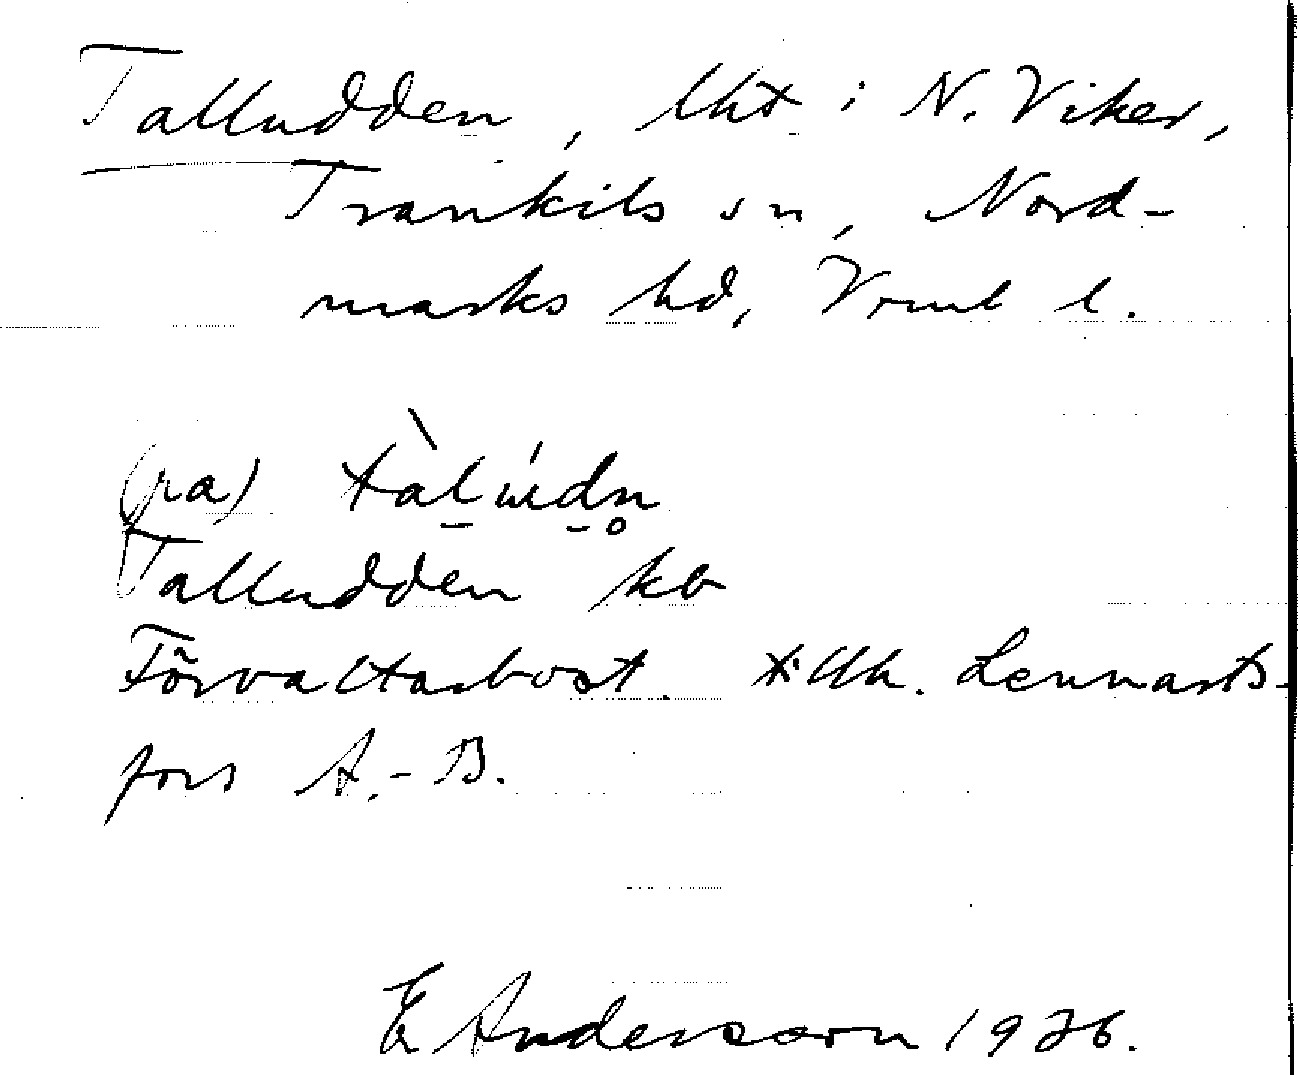 Talludden, lht i N. Viker,
Trankils sn, Nord-
marks hd, Vrml l.
(pa) tàlúdn̥
Talludden kb
Förvaltarbost. tillh. Lennarts-
fors A.-B.
E Anderson 1926.